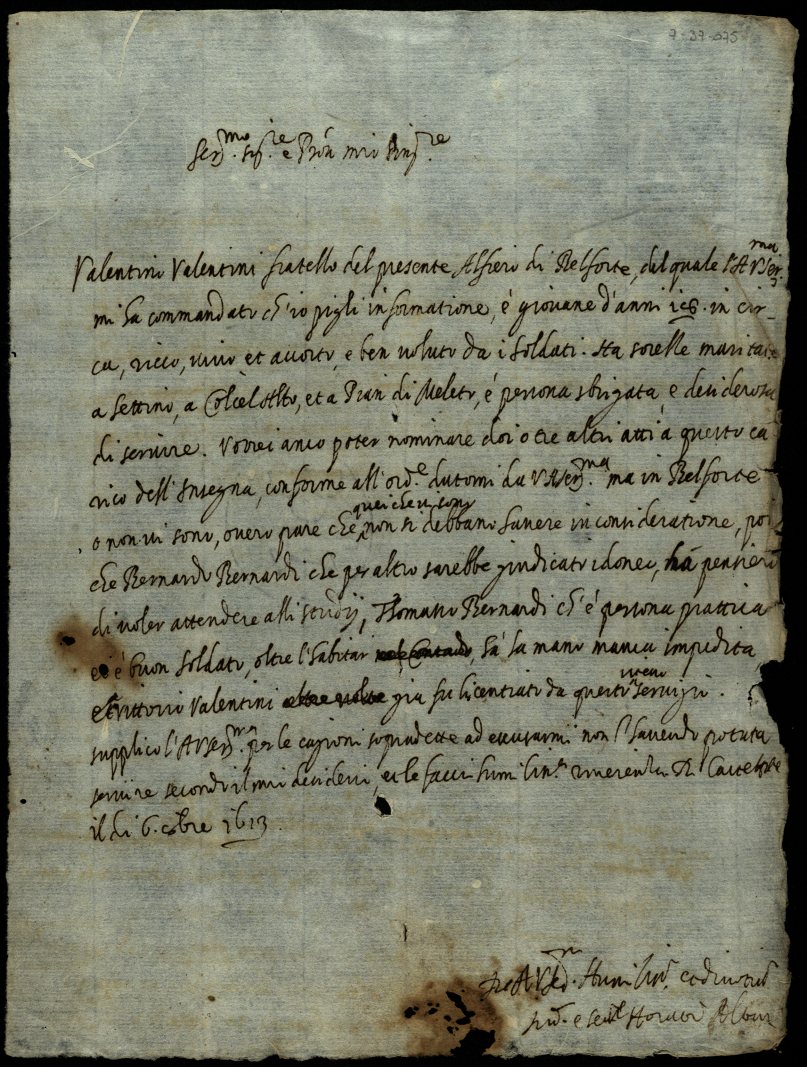 7-37-075
Ser.mo Sig.re e Pron mio Sing.re
Valentino Valentini fratello del presente Alfiero di Belforte, del quale l'A V Ser.ma
mi ha commandato ch'io pigli informatione, é giovane d'anni in cir-
ca, ricco, vivo et accorto, e ben voluto da i soldati. Ha sorelle maritate
a Settino, a Colcelalto, et a Pian di Meleto, é persona sbrigata, e desiderosa
di servire. Vorrei anco poter nominare doi o tre altri atti à questo ca
rico dell'Insegna, conforme all'ord.e datomi da V A Ser.ma ma in Belforte
o non vi sono, overo pure che quei che vi sono non si debbano havere in consideratione, poi
che Bernardo Bernardi che per altro sarebbe giudicato idoneo, há pensiero
di voler attendere alli studij, Thomasso Bernardi ch'é persona prattica
et é buon soldato, oltre l'habitar nel Contado, há la mano manca impedita
et Vittorio Valentini altre volte già fu licentiato da questo servigio.
supplico l'A V Ser.ma per le cagioni sopradette ad escusarmi non l'havendo potuta
servire secondo il mio desiderio, et le faccio humilin.te riverenza. Di
il di 6. 8bre 1613.
Di A V Ser.ma Humiliss.o et divotiss.o
e ser.re Horatio Albani